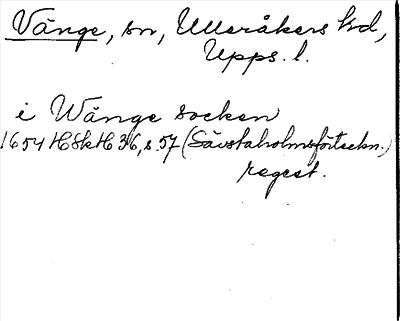 Vänge, sn, Ulleråkers hd,
Upps. l.
i Wänge socken
1654 HSkH 36, s. 57 (Sävstaholmsförteckn.)
regest.